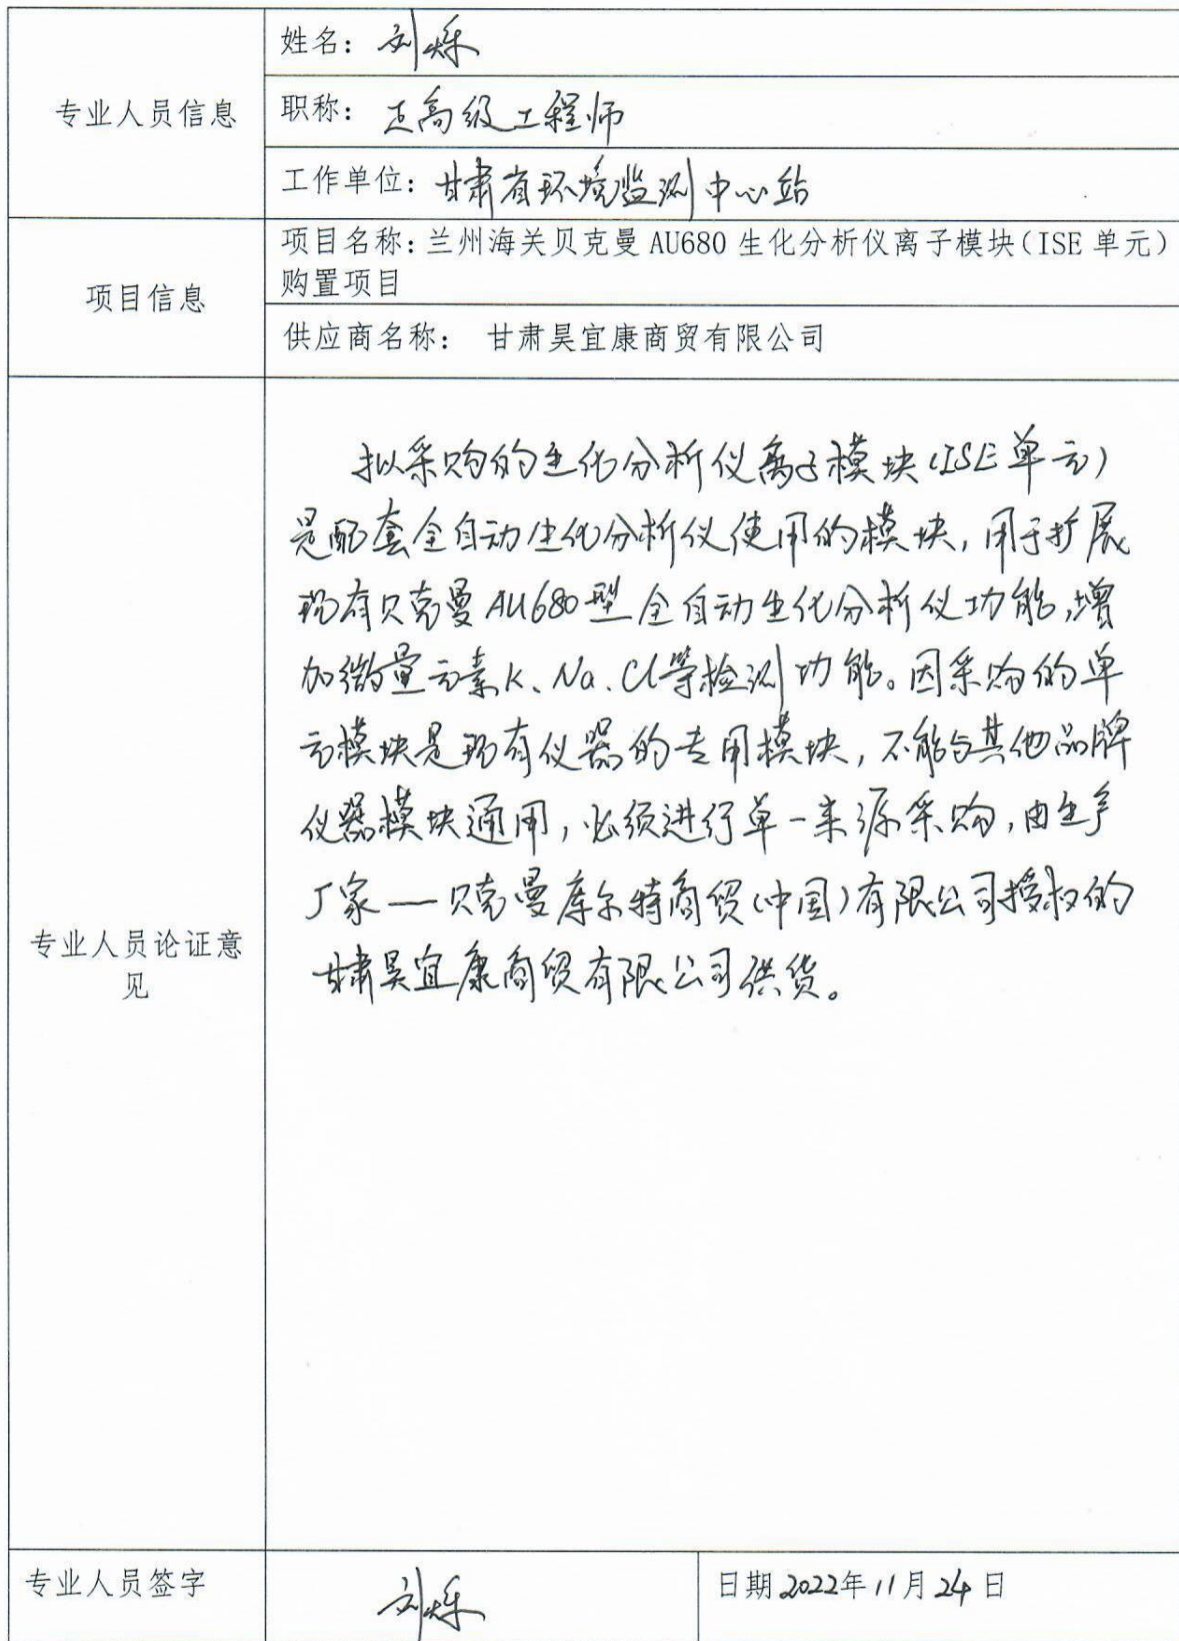 专业人员信息
姓名：刘烁
职称：正高级工程师
工作单位：甘肃省环境监测中心站
项目信息
项目名称：兰州海关贝克曼 AU680 生化分析仪离子模块（ISE 单元）
购置项目
供应商名称： 甘肃昊宜康商贸有限公司
专业人员论证意
见
拟采购的生化分析仪离子模块（ISE单元）
是配套全自动生化分析仪使用的模块，用于扩展
现有贝克曼AU680型全自动生化分析仪功能，增
加微量元素K、Na、Cl等检测功能。因采购的单
元模块是现有仪器的专用模块，不能与其他品牌
仪器模块通用，必须进行单一来源采购，由生产
厂家——贝克曼库尔特商贸（中国）有限公司授权的
甘肃昊宜康商贸有限公司供货。
专业人员签字
刘烁
日期 2022年 11月 24 日